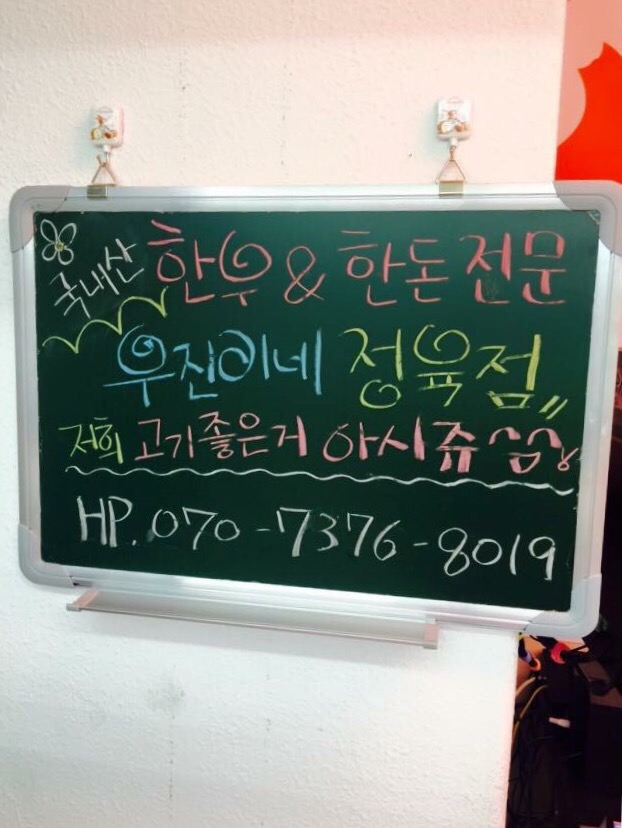 국내산 한우 & 한돈 전문
우진이네 정육점
저희 고기좋은거 아시쥬
HP. 070-7376-8019